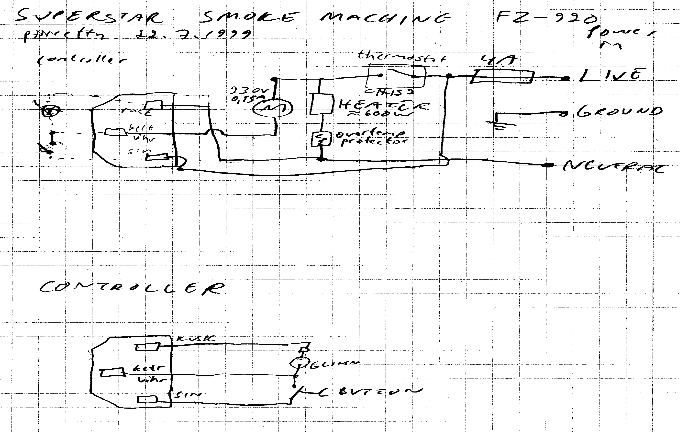 SUPERSTAR SMOKE MACHINE FZ-920
12.7.1999
Power
in
controller
thermostat
4A
LIVE
230V
HEATER
≈600W
GROUND
overtemp
protector
SIN
NEUTRAL
CONTROLLER
RUSK
kelt
vihr
GLIMM
SIN
BUTTON